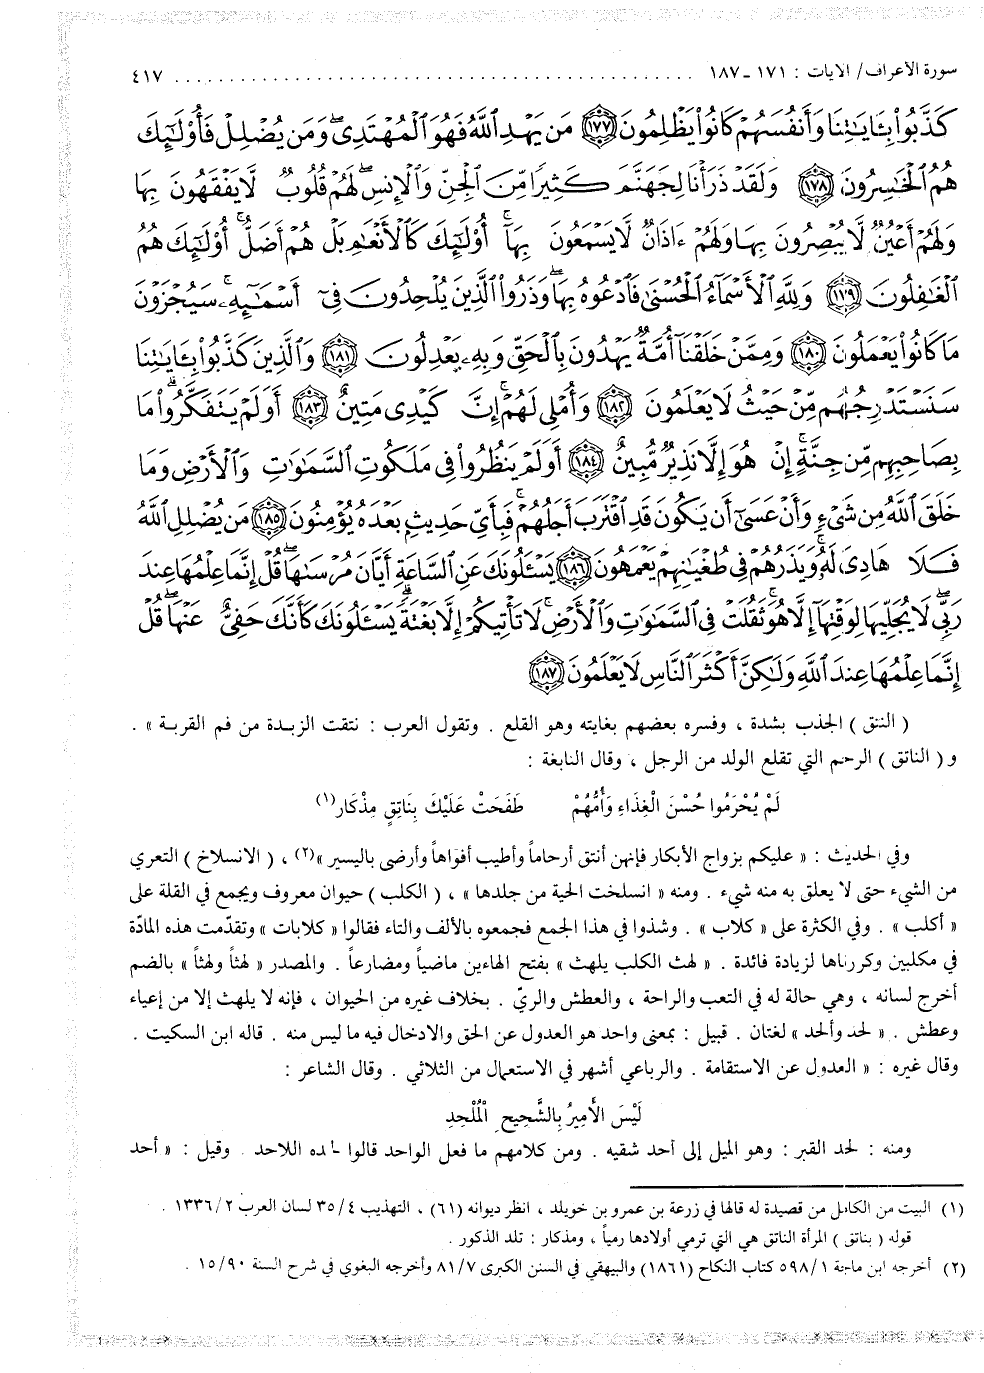 سورة الأعراف/ الآيات : ١٧١ ـ ١٨٧ ........................................ ٤١٧
كَذَّبُوا۟ بِـَٔايَـٰتِنَا وَأَنفُسَهُمْ كَانُوا۟ يَظْلِمُونَ ١٧٧ مَن يَهْدِ ٱللَّهُ فَهُوَ ٱلْمُهْتَدِى وَمَن يُضْلِلْ فَأُو۟لَـٰٓئِكَ
هُمُ ٱلْخَـٰسِرُونَ ١٧٨ وَلَقَدْ ذَرَأْنَا لِجَهَنَّمَ كَثِيرًا مِّنَ ٱلْجِنِّ وَٱلْإِنسِ لَهُمْ قُلُوبٌ لَّا يَفْقَهُونَ بِهَا
وَلَهُمْ أَعْيُنٌ لَّا يُبْصِرُونَ بِهَا وَلَهُمْ ءَاذَانٌ لَّا يَسْمَعُونَ بِهَآ أُو۟لَـٰٓئِكَ كَٱلْأَنْعَـٰمِ بَلْ هُمْ أَضَلُّ أُو۟لَـٰٓئِكَ هُمُ
ٱلْغَـٰفِلُونَ ١٧٩ وَلِلَّهِ ٱلْأَسْمَآءُ ٱلْحُسْنَىٰ فَٱدْعُوهُ بِهَا وَذَرُوا۟ ٱلَّذِينَ يُلْحِدُونَ فِىٓ أَسْمَـٰٓئِهِۦ سَيُجْزَوْنَ
مَا كَانُوا۟ يَعْمَلُونَ ١٨٠ وَمِمَّنْ خَلَقْنَآ أُمَّةٌ يَهْدُونَ بِٱلْحَقِّ وَبِهِۦ يَعْدِلُونَ ١٨١ وَٱلَّذِينَ كَذَّبُوا۟ بِـَٔايَـٰتِنَا
سَنَسْتَدْرِجُهُم مِّنْ حَيْثُ لَا يَعْلَمُونَ ١٨٢ وَأُمْلِى لَهُمْ إِنَّ كَيْدِى مَتِينٌ ١٨٣ أَوَلَمْ يَتَفَكَّرُوا۟ مَا
بِصَاحِبِهِم مِّن جِنَّةٍ إِنْ هُوَ إِلَّا نَذِيرٌ مُّبِينٌ ١٨٤ أَوَلَمْ يَنظُرُوا۟ فِى مَلَكُوتِ ٱلسَّمَـٰوَٰتِ وَٱلْأَرْضِ وَمَا
خَلَقَ ٱللَّهُ مِن شَىْءٍ وَأَنْ عَسَىٰٓ أَن يَكُونَ قَدِ ٱقْتَرَبَ أَجَلُهُمْ فَبِأَىِّ حَدِيثٍۭ بَعْدَهُۥ يُؤْمِنُونَ ١٨٥ مَن يُضْلِلِ ٱللَّهُ
فَلَا هَادِىَ لَهُۥ وَيَذَرُهُمْ فِى طُغْيَـٰنِهِمْ يَعْمَهُونَ ١٨٦ يَسْـَٔلُونَكَ عَنِ ٱلسَّاعَةِ أَيَّانَ مُرْسَىٰهَا قُلْ إِنَّمَا عِلْمُهَا عِندَ
رَبِّى لَا يُجَلِّيهَا لِوَقْتِهَآ إِلَّا هُوَ ثَقُلَتْ فِى ٱلسَّمَـٰوَٰتِ وَٱلْأَرْضِ لَا تَأْتِيكُمْ إِلَّا بَغْتَةً يَسْـَٔلُونَكَ كَأَنَّكَ حَفِىٌّ عَنْهَا قُلْ
إِنَّمَا عِلْمُهَا عِندَ ٱللَّهِ وَلَـٰكِنَّ أَكْثَرَ ٱلنَّاسِ لَا يَعْلَمُونَ ١٨٧
( النتق ) الجذب بشدة ، وفسره بعضهم بغايته وهو القلع . وتقول العرب : نتقت الزبدة من فم القربة » .
و ( الناتق ) الرحم التي تقلع الولد من الرجل ، وقال النابغة :
لَمْ يُحْرَمُوا حُسْنَ الْغِذَاءِ وَأُمُّهُمْ طَفَحَتْ عَلَيْكَ بِنَاتِقٍ مِذْكَارِ(١)
وفي الحديث : « عليكم بزواج الأبكار فإنهن أنتق أرحاماً وأطيب أفواهاً وأرضى باليسير »(٢) ، ( الانسلاخ ) التعري
من الشيء حتى لا يعلق به منه شيء . ومنه « انسلخت الحية من جلدها » ، ( الكلب ) حيوان معروف ويجمع في القلة على
« أكلب » . وفي الكثرة على « كلاب » . وشذوا في هذا الجمع فجمعوه بالألف والتاء فقالوا « كلابات » وتقدّمت هذه المادّة
في مكلبين وكررناها لزيادة فائدة . « لهث الكلب يلهث » بفتح الهاءين ماضياً ومضارعاً . والمصدر « لهثاً ولهثاً » بالضم
أخرج لسانه ، وهي حالة له في التعب والراحة ، والعطش والريّ . بخلاف غيره من الحيوان ، فإنه لا يلهث إلا من إعياء
وعطش . « لحد وألحد » لغتان . قبيل : بمعنى واحد هو العدول عن الحق والادخال فيه ما ليس منه . قاله ابن السكيت .
وقال غيره : « العدول عن الاستقامة . والرباعي أشهر في الاستعمال من الثلاثي . وقال الشاعر :
لَيْسَ الْأَمِيرُ بِالشَّحِيحِ الْمُلْحِدِ
ومنه : لحد القبر : وهو الميل إلى أحد شقيه . ومن كلامهم ما فعل الواحد قالوا لحده اللاحد . وقيل : « أحد
(١) البيت من الكامل من قصيدة له قالها في زرعة بن عمرو بن خويلد ، انظر ديوانه (٦١) ، التهذيب ٣٥/٤ لسان العرب ١٣٣٦/٢ .
قوله ( بناتق ) المرأة الناتق هي التي ترمي أولادها رمياً ، ومذكار : تلد الذكور .
(٢) أخرجه ابن ماجة ٥٩٨/١ كتاب النكاح (١٨٦١) والبيهقي في السنن الكبرى ٨١/٧ وأخرجه البغوي في شرح السنة ١٥/٩٠ .